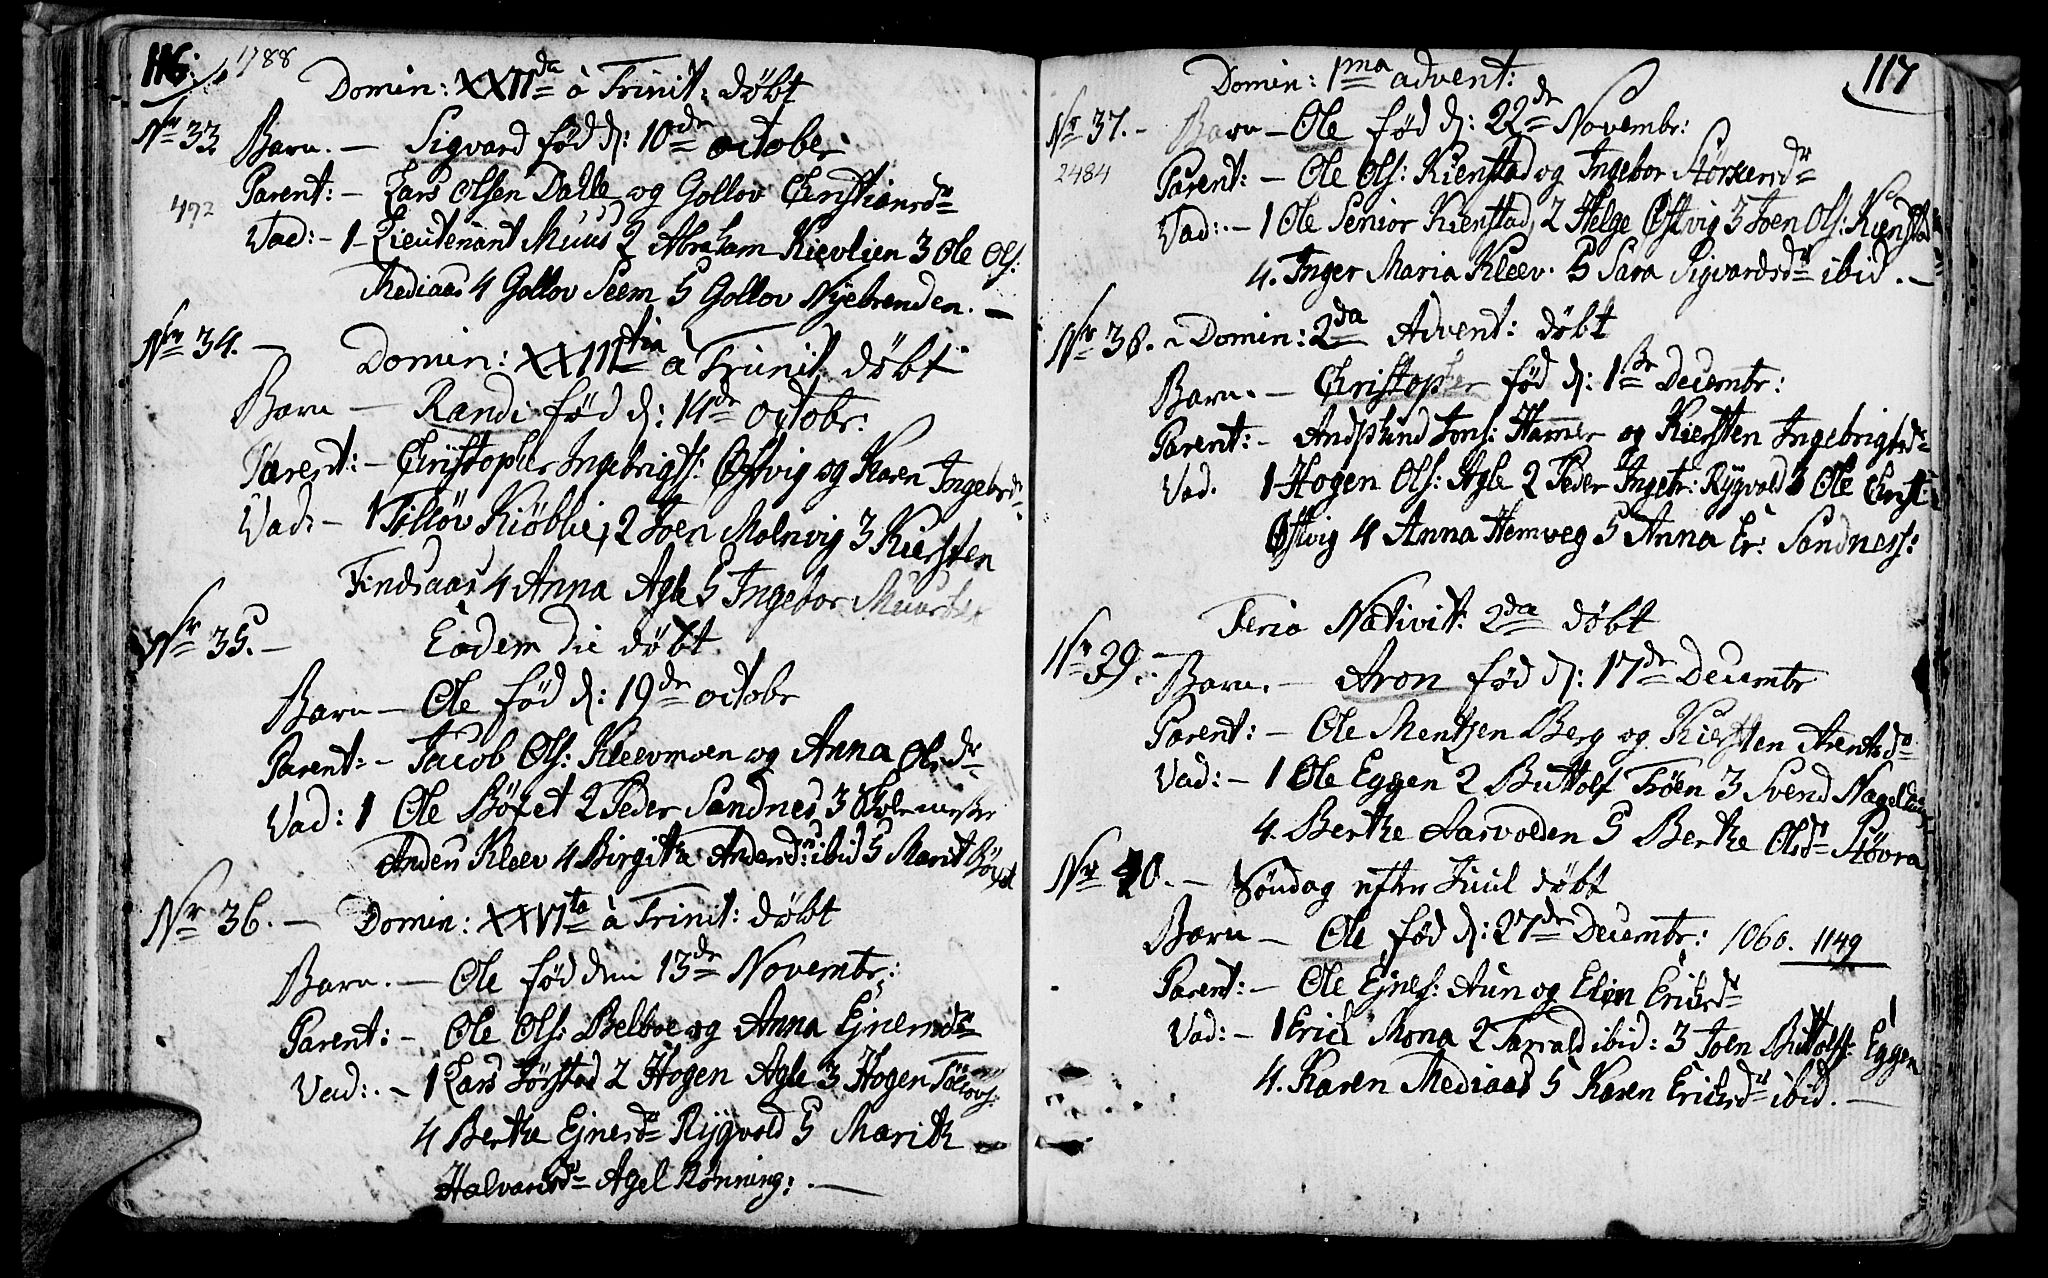 116: 1788
Domin: XXII da à Trinit: døbt
Nr 33. Barn. – Sigvard fød d: 10de october
Parent: – Lars Olsen Dalle og Gollov Christiansdr
492
Vad: – 1 Lieutenant Muus 2 Abraham Kievlien 3 Ole Ols:
Mediaas 4 Gollov Seem 5 Gollov Nyebrenden. –
Nr 34. –
Domin: XXIII tia à Trinit. døbt
Barn – Randi fød d: 14de octobr:
Parent: – Christopher Ingebrigts: Østvig og Karen Ingebrdr
Vad: – 1 Tilløv Kiøblie, 2 Joen Molnvig 3 Kiersten
Findsaas 4 Anna Agle 5 Ingebor
Nr 35. – Eodem die døbt
Barn – Ole fød d: 19de octobr
Parent: – Jacob Ols: Kleevmoen og Anna Olsdr
Vad: 1 Ole Bøfet 2 Peder Sandnes 3 Skolemester
Anders Kleev 4 Birgitha Andersdr ibid 5 Marit
Nr 36. – Domin: XXVI ta à Trinit: døbt
Barn. – Ole fød den 13de Novembr:
Parent: – Ole Ols: Belboe og Anna Ejnersdr
Vad: – 1 Lars Jørstad 2 Hogen Agle 3 Hogen Tøllovs:
4 Berthe Ejnersdr Rygvold 5 Marith
Halvorsdr Agel Rønning: –
117
Domin: 1ma advent:
Nr 37. – Barn – Ole fød d: 22de Novembr:
2484
Parent: – Ole Ols: Kienstad og Ingebor Størkersdr
Vad: – 1 Ole Senior Kienstad, 2 Helge Østvig 3 Joen Ols: Kienstad
4. Inger Maria Kleev. 5 Sara Sigvardsdr ibid. –
Nr 38. – Domin: 2da Advent: døbt
Barn. – Christopher fød d: 1ste Decembr:
Parent: – Andsfind Jons: Hammer og Kiersten Ingebrigtsdr
Vad. 1 Hogen Ols: Agle 2 Peder Ingebr: Rygvold 3 Ole Christ:
Østvig 4 Anna Hemveg 5 Anna Er: Sandness:
Feria Nativit: 2da døbt
Nr 39. –
Barn. – Aron fød d: 17de Decembr
Parent: – Ole Mentzen Berg og Kiersten Arentsdr
Vad: – 1 Ole Eggen 2 Buttolf Troen 3 Svend
4. Berthe Aasvolden 5 Berthe Olsdr Støvra
Nr 40. – Søndag efter Juul døbt
Barn – Ole fød d: 27de Decembr: 1060. 1149
Parent: – Ole Ejnes: Aun og Elen Ericksdr
Vad: – 1 Erick Mona 2 Tarrald ibid: 3 Joen Buttolfs: Eggen
4. Karen Mediaas 5 Karen Ericksdr ibid. –